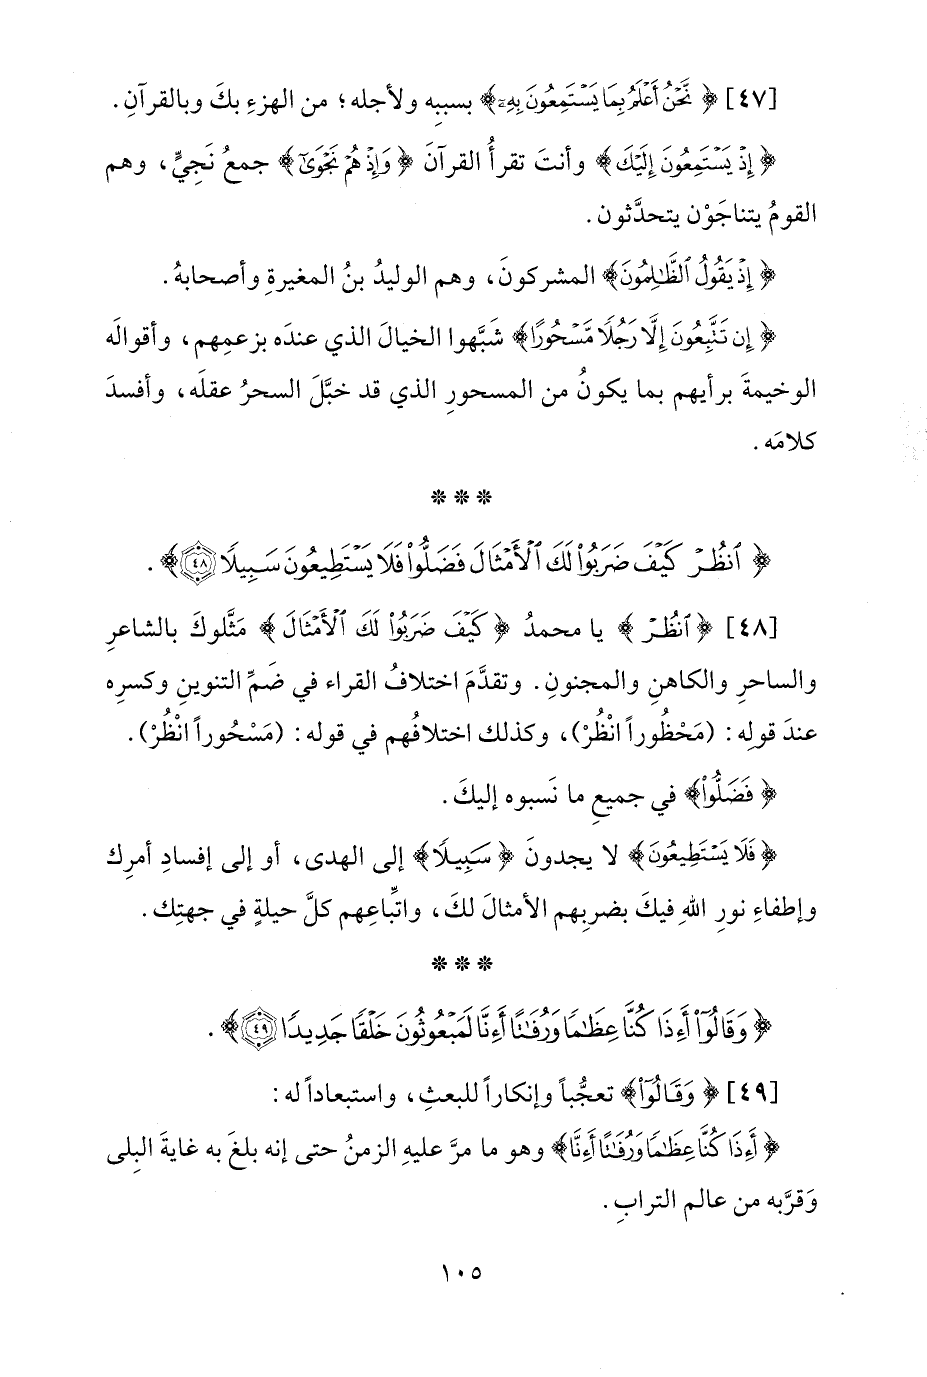 [٤٧] ﴿ نَّحْنُ أَعْلَمُ بِمَا يَسْتَمِعُونَ بِهِۦٓ﴾ بسببِه ولأجله؛ من الهزءِ بكَ وبالقرآنِ.
﴿ إِذْ يَسْتَمِعُونَ إِلَيْكَ﴾ وأنتَ تقرأُ القرآنَ ﴿وَإِذْ هُمْ نَجْوَىٰٓ﴾ جمعُ نَجِيٍّ، وهم
القومُ يتناجَوْن يتحدَّثون.
﴿ إِذْ يَقُولُ ٱلظَّٰلِمُونَ﴾ المشركونَ، وهم الوليدُ بنُ المغيرةِ وأصحابهُ.
﴿ إِن تَتَّبِعُونَ إِلَّا رَجُلًا مَّسْحُورًا﴾ شَبَّهوا الخيالَ الذي عندَه بزعمِهم، وأقوالَه
الوخيمةَ برأيهم بما يكونُ من المسحورِ الذي قد خبَّلَ السحرُ عقلَه، وأفسدَ
كلامَه.
* * *
﴿ ٱنظُرْ كَيْفَ ضَرَبُوا۟ لَكَ ٱلْأَمْثَالَ فَضَلُّوا۟ فَلَا يَسْتَطِيعُونَ سَبِيلًا ٤٨﴾.
[٤٨] ﴿ ٱنظُرْ ﴾ يا محمدُ ﴿ كَيْفَ ضَرَبُوا۟ لَكَ ٱلْأَمْثَالَ ﴾ مَثَّلوكَ بالشاعرِ
والساحرِ والكاهنِ والمجنونِ. وتقدَّمَ اختلافُ القراء في ضَمِّ التنوينِ وكسرِه
عندَ قولِه: (مَحْظُوراً انْظُرْ)، وكذلك اختلافُهم في قوله: (مَسْحُوراً انْظُرْ).
﴿ فَضَلُّوا۟﴾ في جميعِ ما نَسبوه إليكَ.
﴿فَلَا يَسْتَطِيعُونَ﴾ لا يجدونَ ﴿سَبِيلًا﴾ إلى الهدى، أو إلى إفسادِ أمرِك
وإطفاءِ نورِ اللهِ فيكَ بضربِهم الأمثالَ لكَ، واتِّباعِهم كلَّ حيلةٍ في جهتِك.
* * *
﴿ وَقَالُوٓا۟ أَءِذَا كُنَّا عِظَٰمًا وَرُفَٰتًا أَءِنَّا لَمَبْعُوثُونَ خَلْقًا جَدِيدًا ٤٩﴾.
[٤٩] ﴿ وَقَالُوٓا۟﴾ تعجُّباً وإنكاراً للبعثِ، واستبعاداً له:
﴿أَءِذَا كُنَّا عِظَٰمًا وَرُفَٰتًا أَءِنَّا﴾ وهو ما مرَّ عليهِ الزمنُ حتى إنه بلغَ به غايةَ البِلى
وَقرَّبه من عالم الترابِ.
١٠٥